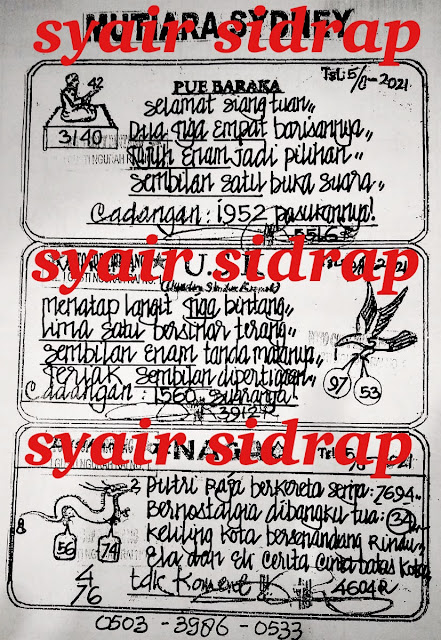 MUTIARA SYDNEY
syair sidrap
42
3140
PUE BARAKA
Tgl: 5/6-2021
Selamat siang tuan,,
Dua tiga Empat barisannya,,
Tujuh Enam Jadi pilihan
Sembilan satu buka suara,,
Cadangan: 1952 pasukannya!
5516R
syair sidrap
Menatap langit tiga bintang,,
Lima satu bersinar terang,,
Sembilan Enam tanda matanya,,
Teriak Sembilan dipertigaan,,
Cadangan: 1560 suaranya!
3912R
97
53
syair sidrap
NAGA
2021
8
2
56
74
4
76
Putri Raja berkereta senja: 7694
Bernostalgia dibangku tua: 34
Keliling Kota bersenandung Rindu,,
Ela dan Eli cerita Cinta batas Kota
tdk Koment
4604R
0503 - 3986 - 0533